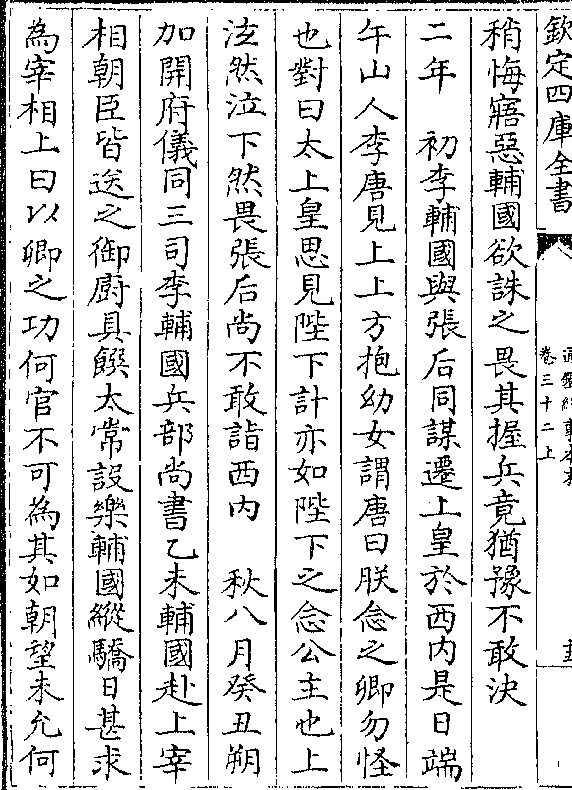 欽定四庫全書
卷三十二上
稍悔寤惡輔國欲誅之畏其握兵竟猶豫不敢決
二年　初李輔國與張后同謀遷上皇於西内是日端
午山人李唐見上上方抱幼女謂唐曰朕念之卿勿怪
也對曰太上皇思見陛下計亦如陛下之念公主也上
泫然泣下然畏張后尚不敢詣西内　秋八月癸丑朔
加開府儀同三司李輔國兵部尚書乙未輔國赴上宰
相朝臣皆送之御厨具饌太常設樂輔國縱驕日甚求
為宰相上曰以卿之功何官不可為其如朝望未允何